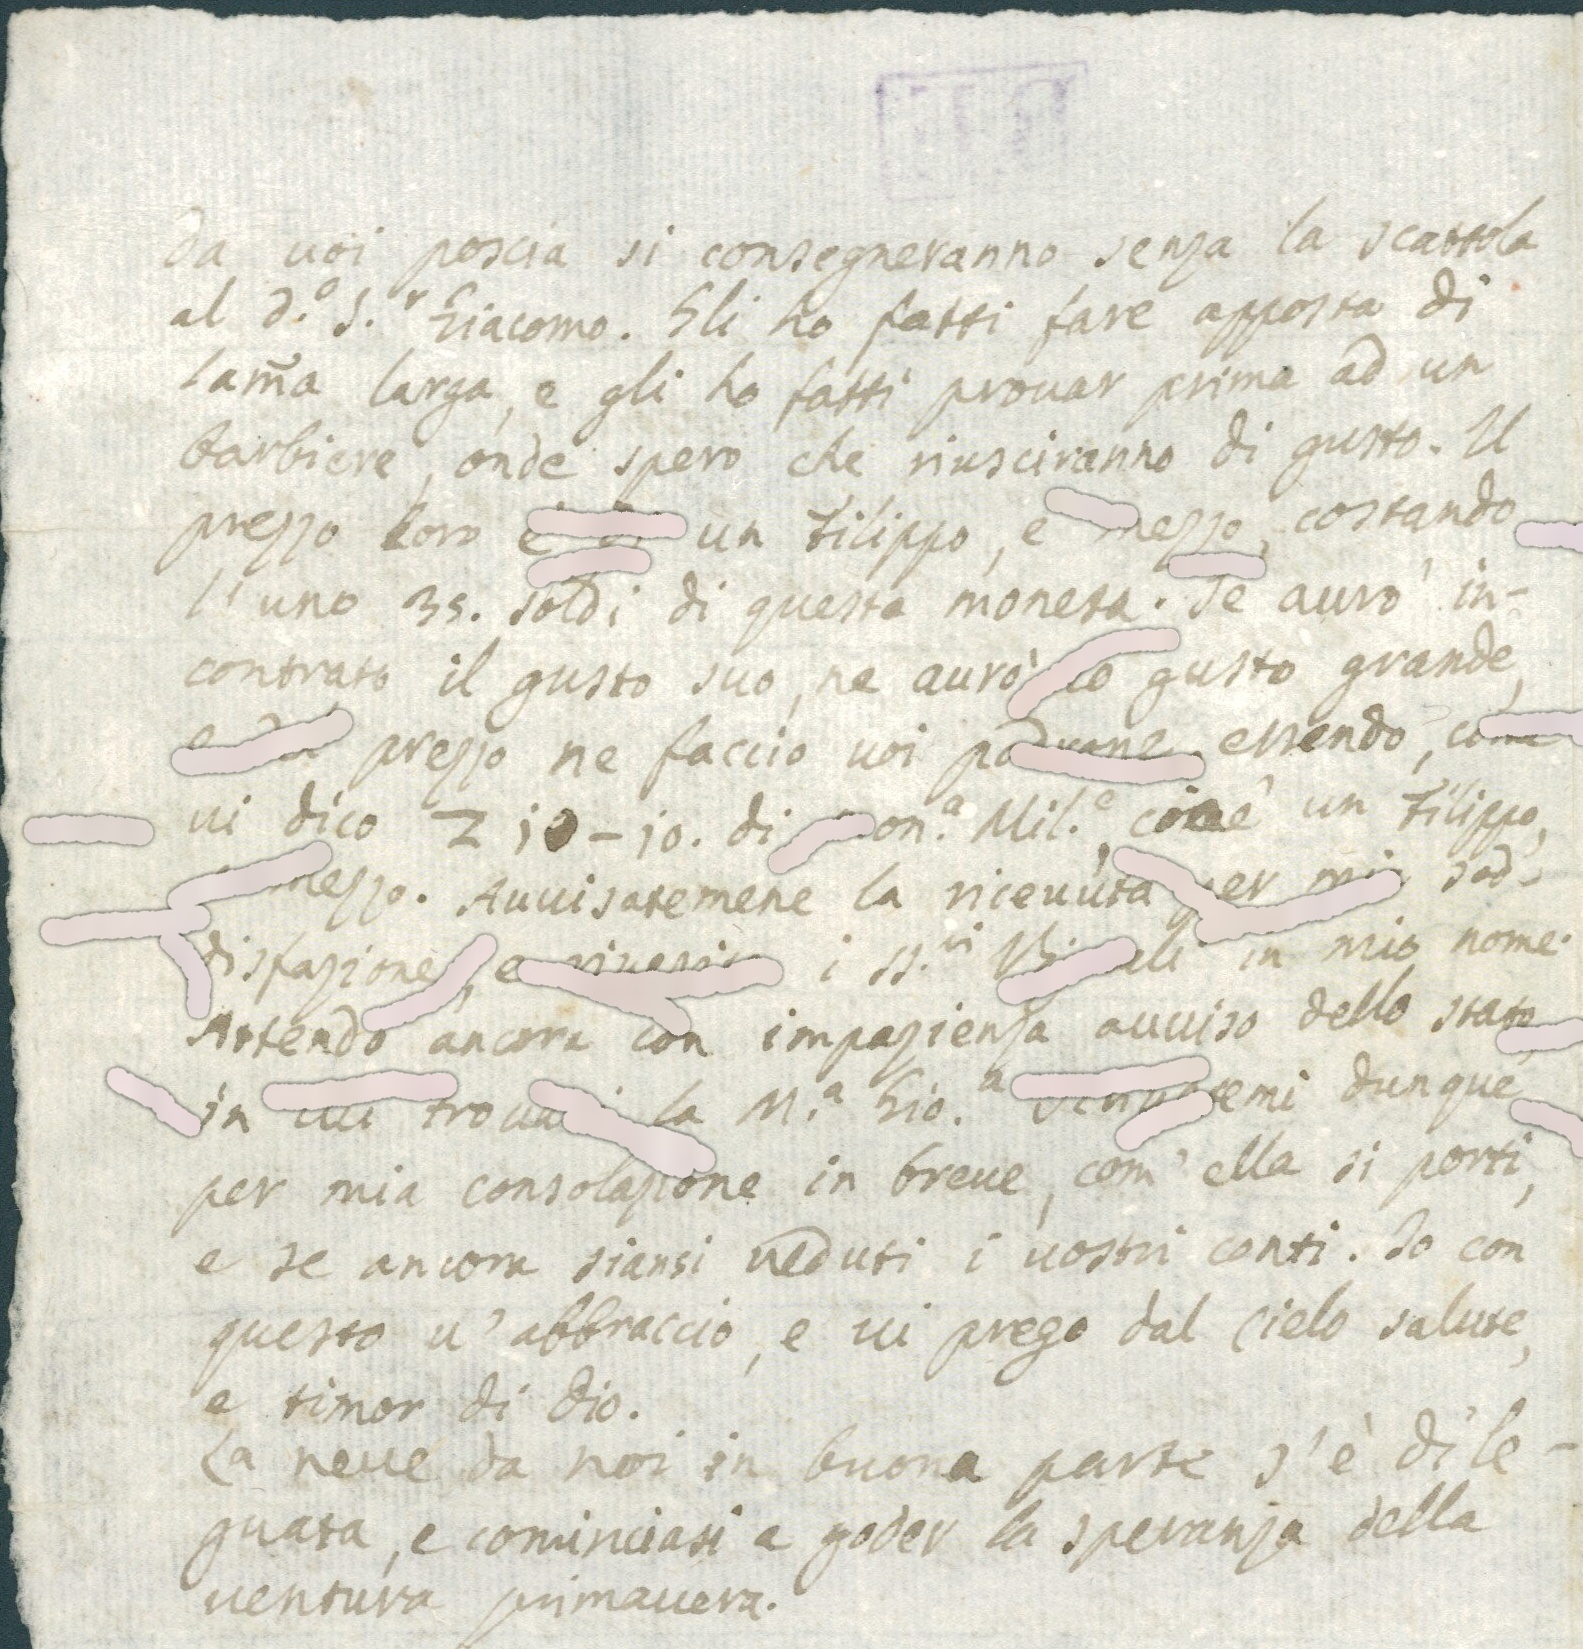 da uoi poscia si consegneranno senza la scattola
al d.º S.r Giacomo. Gli ho fatti fare apposta di
lam̃a larga, e gli ho fatti prouar prima ad un
barbiere, onde spero che riusciranno di gusto. Il
prezzo loro un Filippo, e mezzo, costando
l'uno 35. soldi di questa moneta. Se aurò in-
contrato il gusto suo, ne aurò gusto grande,
prezzo ne faccio uoi padrone, essendo,
ui dico Z 10-10. di Mil.e, cioè un Filippo,
mezzo. Auuisatemene la riceuuta per mia sod-
disfazione, e i SS.ri in mio nome.
Attendo ancora con impazienza auuiso dello stato,
in cui la M.a Gio.a dunque
per mia consolazione in breue, com' ella si porti,
e se ancora siansi ueduti i uostri conti. Io con
questo u'abbraccio, e ui prego dal Cielo salute,
e timor di Dio.
La neue da noi in buona parte s'è dile-
guata, e cominciasi a goder la speranza della
uentura primauera.